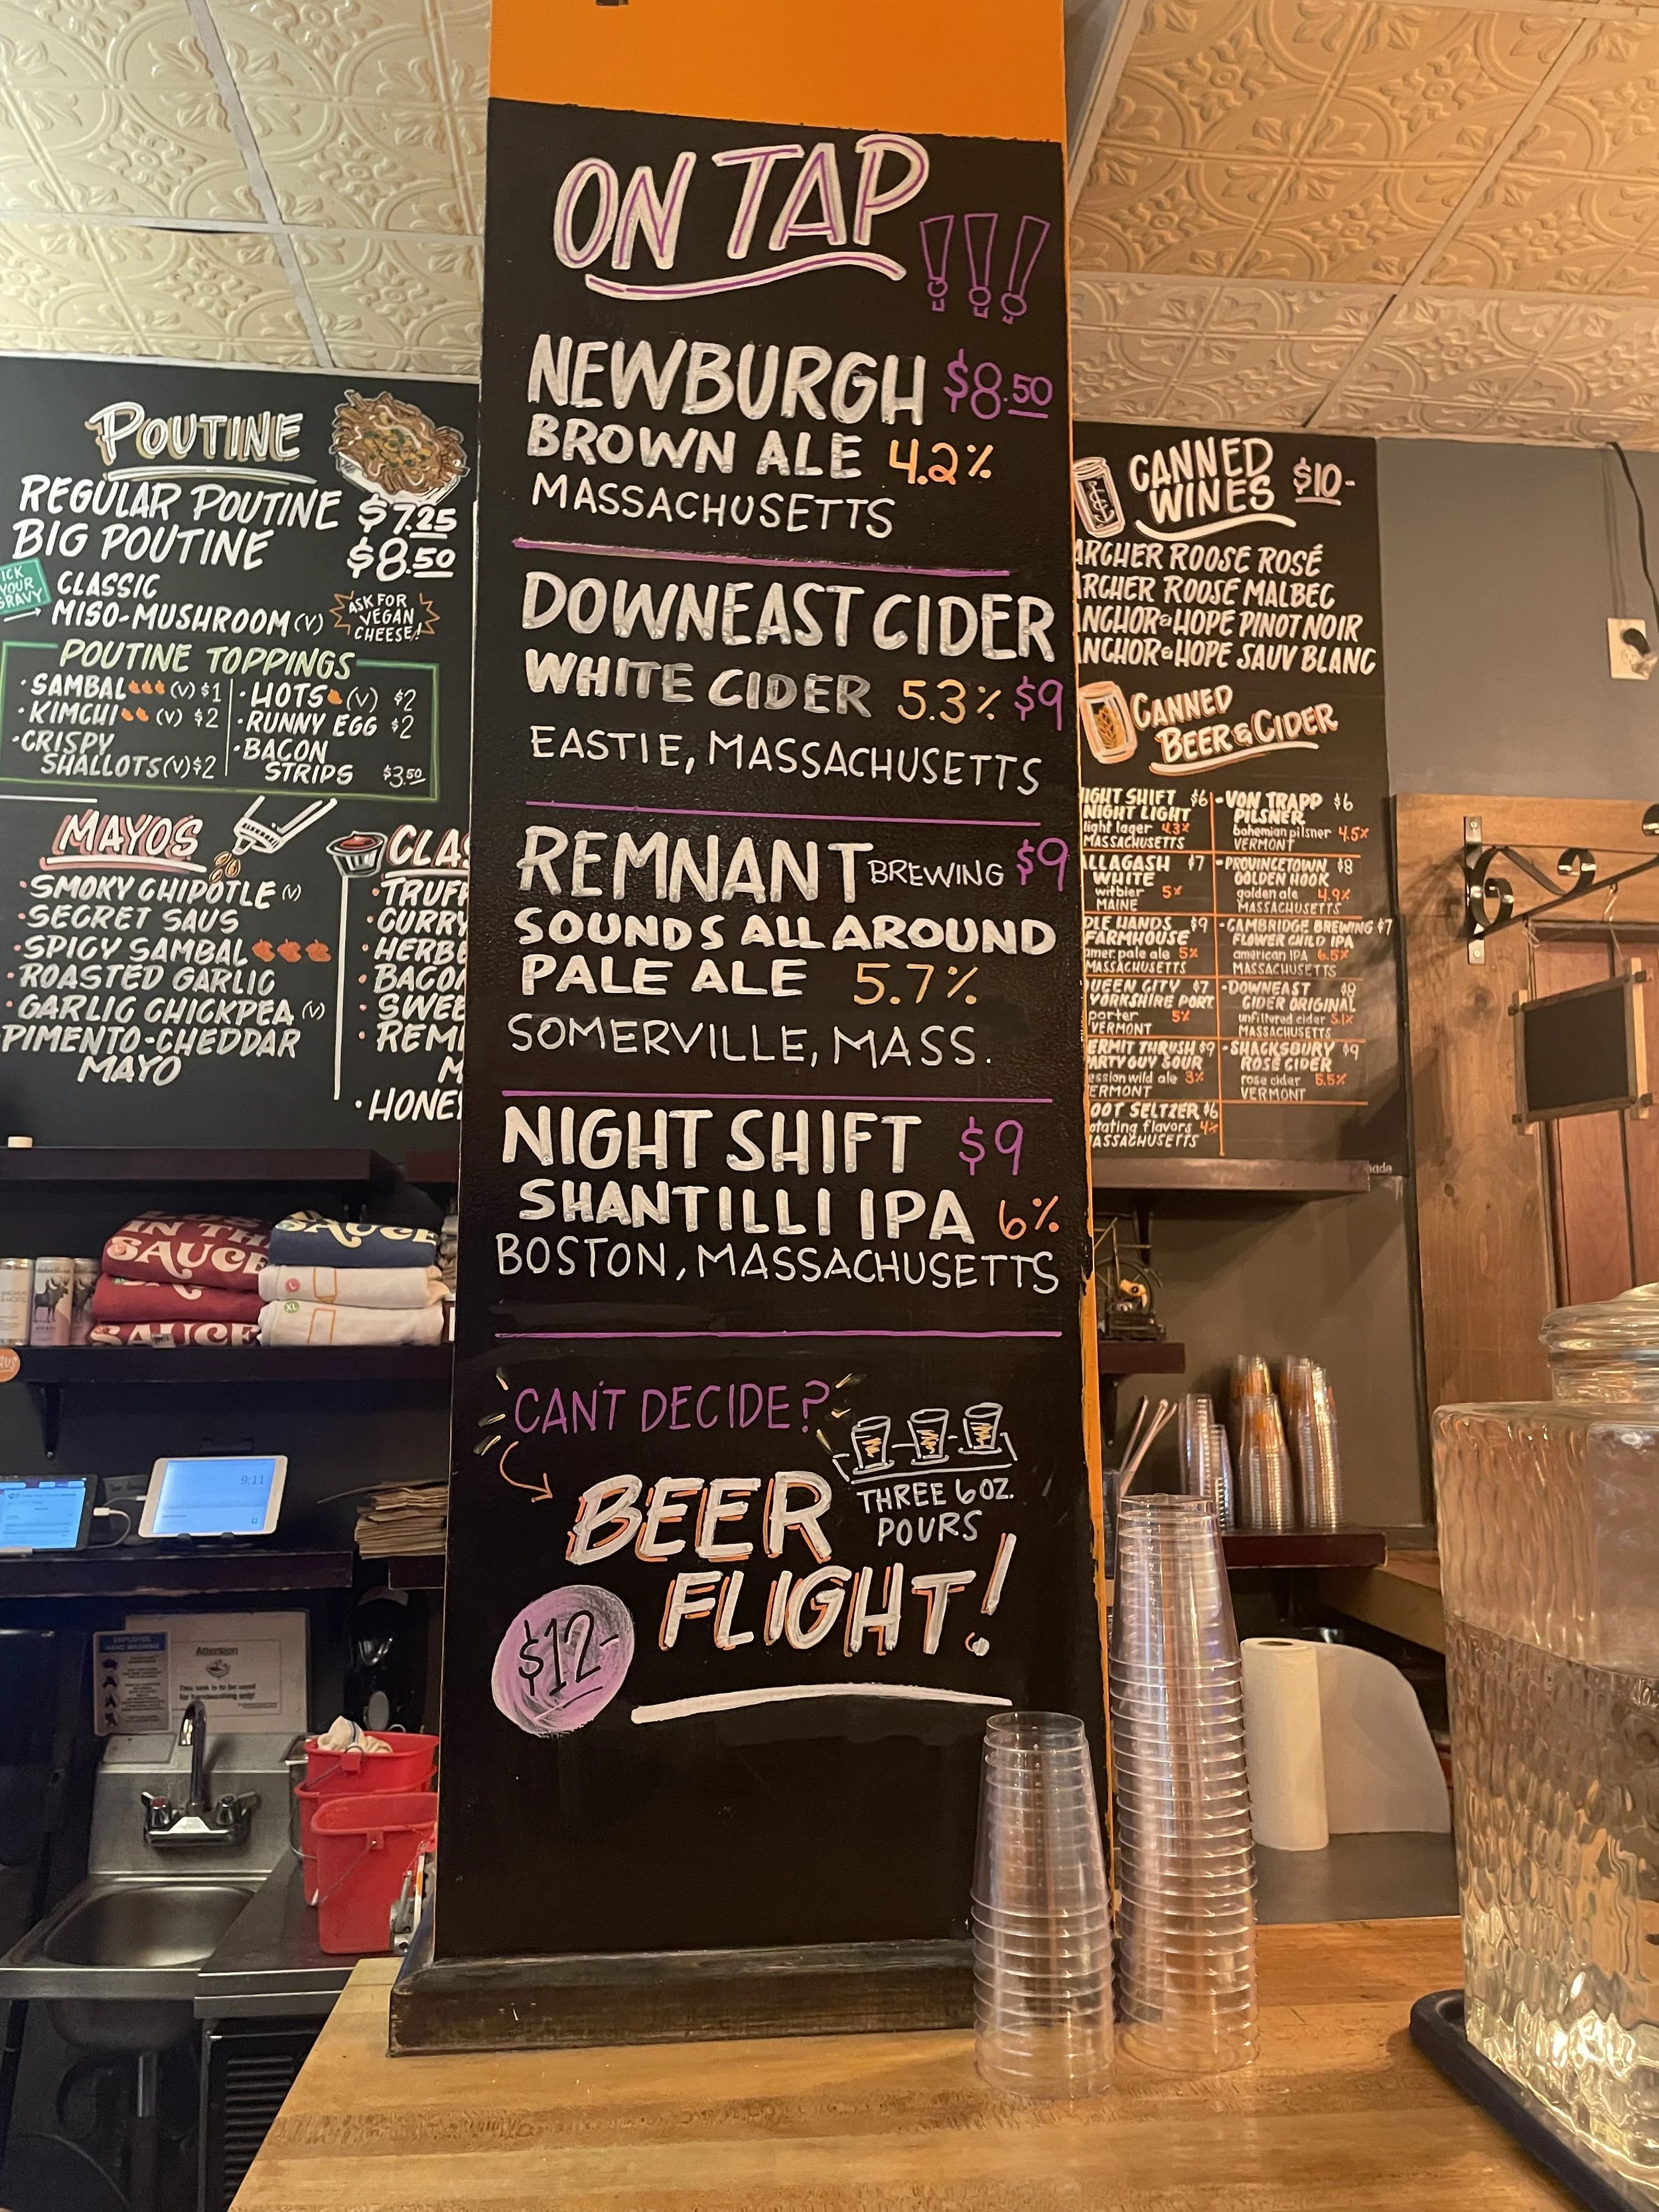 ON TAP !!!
NEWBURGH $8.50
BROWN ALE 4.2%
MASSACHUSETTS
DOWNEAST CIDER
WHITE CIDER 5.3% $9
EASTIE, MASSACHUSETTS
REMNANT BREWING $9
SOUNDS ALL AROUND
PALE ALE 5.7%
SOMERVILLE, MASS.
NIGHT SHIFT $9
SHANTILLI IPA 6%
BOSTON, MASSACHUSETTS
CAN'T DECIDE?
BEER
FLIGHT!
THREE 6 OZ.
POURS
$12-
POUTINE
REGULAR POUTINE $7.25
BIG POUTINE $8.50
ICK
YOUR
GRAVY
CLASSIC
MISO-MUSHROOM (V)
ASK FOR
VEGAN
CHEESE!
POUTINE TOPPINGS
• SAMBAL (V) $1
• KIMCHI (V) $2
• CRISPY
SHALLOTS (V) $2
• HOTS (V) $2
• RUNNY EGG $2
• BACON
STRIPS $3.50
MAYOS
• SMOKY CHIPOTLE (V)
• SECRET SAUS
• SPICY SAMBAL
• ROASTED GARLIC
• GARLIC CHICKPEA (V)
PIMENTO-CHEDDAR
MAYO
CLAS
• TRUFF
• CURRY
• HERB
• BACO
• SWEE
• REM
M
• HONEY
CANNED
WINES $10-
ARCHER ROOSE ROSÉ
ARCHER ROOSE MALBEC
ANCHOR & HOPE PINOT NOIR
ANCHOR & HOPE SAUV BLANC
CANNED
BEER & CIDER
IGHT SHIFT $6
NIGHT LIGHT
light lager 4.3%
MASSACHUSETTS
LLAGASH $7
WHITE
witbier 5%
MAINE
DLE HANDS $9
FARMHOUSE
amer. pale ale 5%
MASSACHUSETTS
UEEN CITY $7
YORKSHIRE PORT.
porter 5%
VERMONT
ERMIT THRUSH $9
ARTY GUY SOUR
ession wild ale 3%
ERMONT
OOT SELTZER $6
otating flavors 4%
MASSACHUSETTS
- VON TRAPP $6
PILSNER
bohemian pilsner 4.5%
VERMONT
- PROVINCETOWN $8
GOLDEN HOOK
golden ale 4.9%
MASSACHUSETTS
- CAMBRIDGE BREWING $7
FLOWER CHILD IPA
american IPA 6.5%
MASSACHUSETTS
- DOWNEAST
CIDER ORIGINAL
unfiltered cider 5.1%
MASSACHUSETTS
- SHACKSBURY $9
ROSE CIDER
rose cider 5.5%
VERMONT
IN THE
SAUCE
SAUCE
SAUCE
L
XL
9:11
EMPLOYEE
HAND WASHING
Attention
This sink is to be used
for handwashing only!